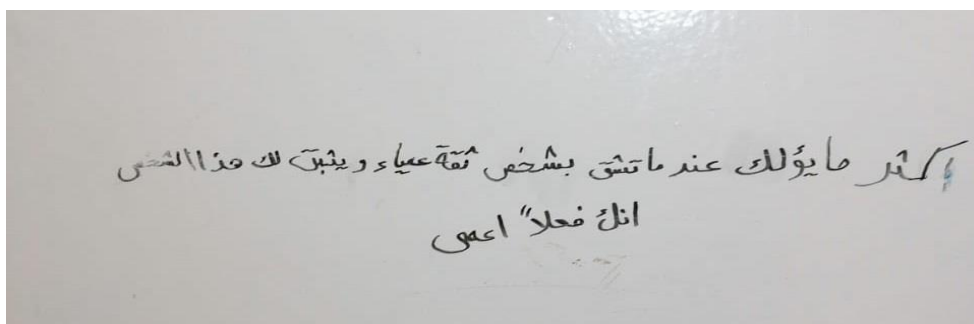 اكثر مايؤلك عندماتثق بشخص ثقة عمياء ويثبت لك هذا الشخص
انك فعلاً اعمى